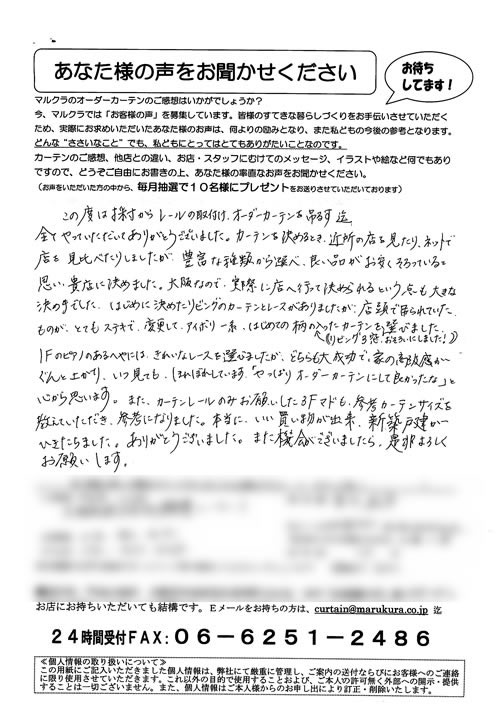 あなた様の声をお聞かせください
お待ち
してます!
マルクラのオーダーカーテンのご感想はいかがでしょうか?
今、マルクラでは「お客様の声」を募集しています。皆様のすてきな暮らしづくりをお手伝いさせていただく
ため、実際にお求めいただいたあなた様のお声は、何よりの励みとなり、また私どもの今後の参考となります。
どんな"ささいなこと"でも、私どもにとってはとてもありがたいことなのです。
カーテンのご感想、他店との違い、お店・スタッフにむけてのメッセージ、イラストや絵など何でもあり
ますので、どうぞご自由にお書きの上、あなた様の率直なお声をお聞かせください。
(お声をいただいた方の中から、毎月抽選で10名様にプレゼントをお送りさせていただいております)
この度は採寸からレールの取付け、オーダーカーテンを吊るす迄
全てやっていただいてありがとうございました。カーテンを決めるとき、近所の店を見たり、ネットで
店を見比べたりしましたが、豊富な種類から選べ、良い品がお安くそろっていると
思い、貴店に決めました。大阪なので、実際に店へ行って決められるという点も大きな
決め手でした。はじめに決めたリビングのカーテンとレースがありましたが、店頭で吊られていた
ものが、とてもステキで、変更して、アイボリー系、はじめての柄の入ったカーテンを選びました。
(リビング3窓、おそろいにしました!)
1Fのピアノのあるへやには、きれいなレースを選びましたが、どちらも大成功で、家の高級度が
ぐんと上がり、いつ見ても、ほれぼれしています。「やっぱりオーダーカーテンにして良かったな」と
心から思います。また、カーテンレールのみお願いした3Fマドも、参考カーテンサイズを
教えていただき、参考になりました。本当に、いい買い物が出来、新築戸建が
ひきたちました。ありがとうございました。また機会がございましたら、是非よろしく
お願いします。
お店にお持ちいただいても結構です。Eメールをお持ちの方は、curtain@marukura.co.jp 迄
24時間受付FAX:06-6251-2486
≪個人情報の取り扱いについて≫
この用紙にご記入いただきました個人情報は、弊社にて厳重に管理し、ご案内の送付ならびにお客様へのご連絡
に限り使用させていただきます。これ以外の目的で使用することおよび、ご本人の許可無く外部への開示・提供
することは一切ございません。また、個人情報はご本人様からのお申し出により訂正・削除いたします。